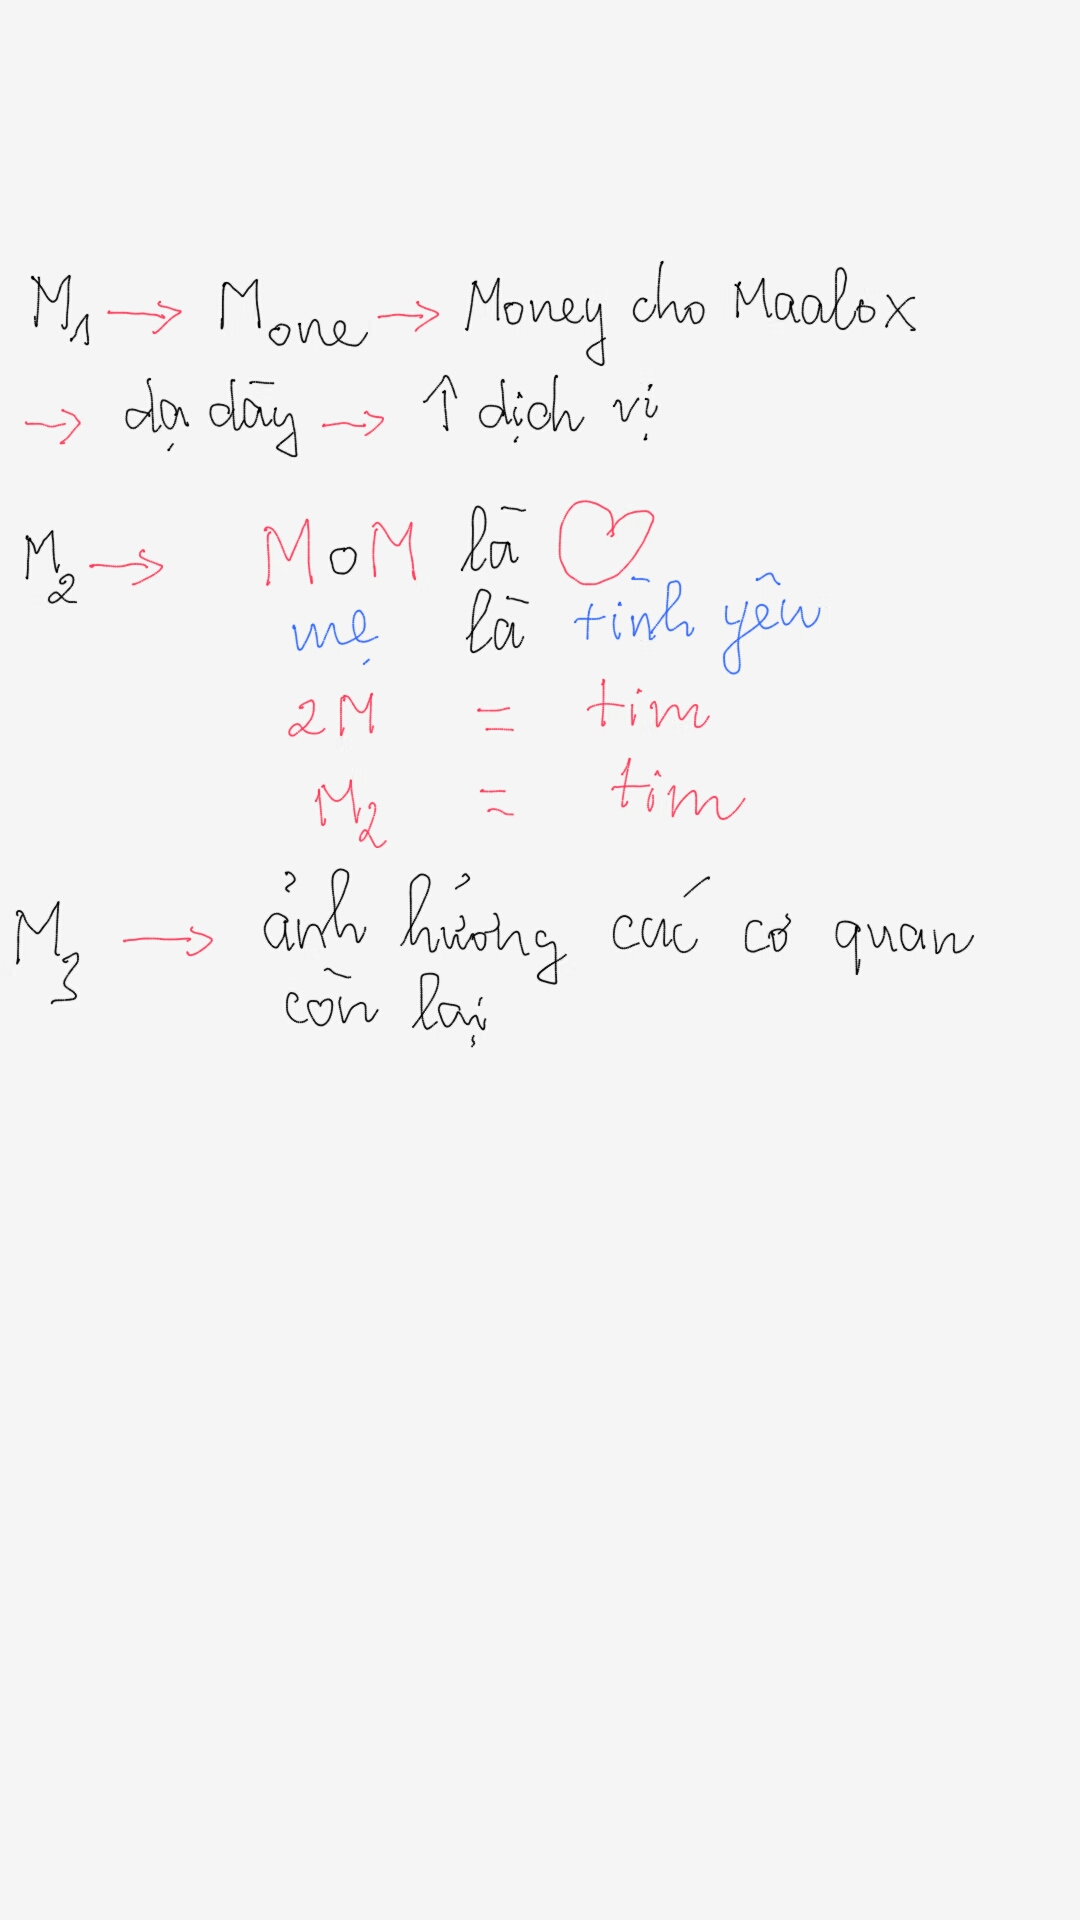 M₁ → Mone → Money cho Maalox
→ dạ dày → ↑ dịch vị
M₂ → MOM là ♡
mẹ là tình yêu
2M = tim
M₂ = tim
M₃ → ảnh hưởng các cơ quan
còn lại